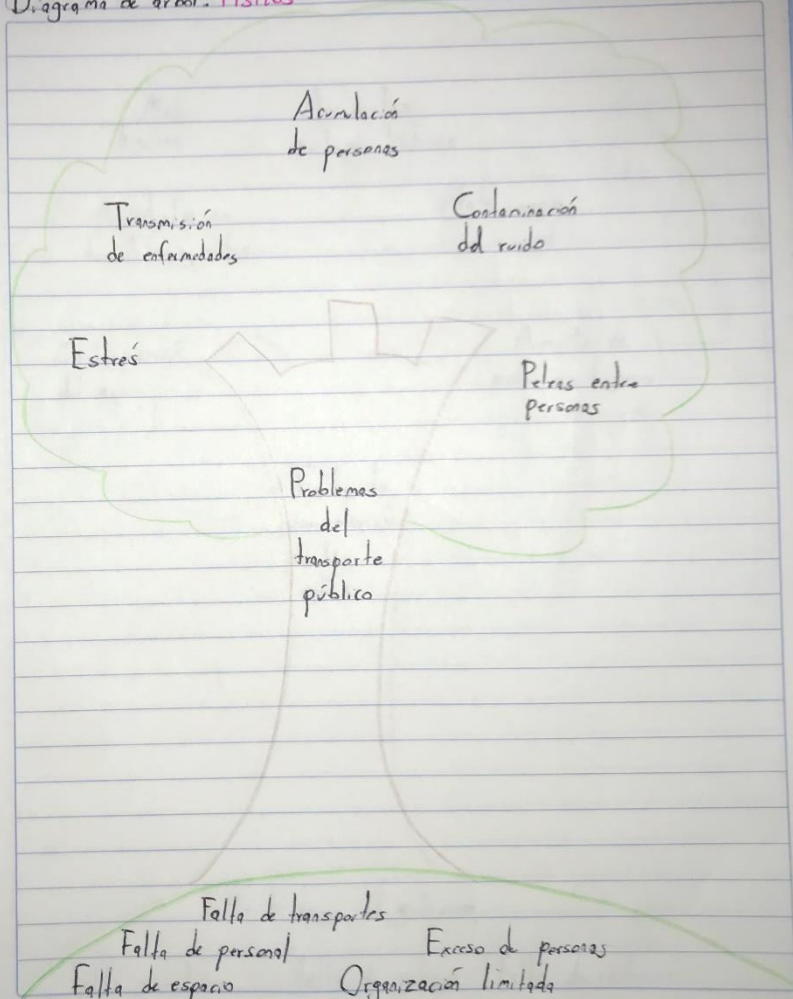 Diagrama de árbol: Físicos
Acumulación
de personas
Transmisión
de enfermedades
Contaminación
del ruido
Estrés
Peleas entre
personas
Problemas
del
transporte
público
Falta de transportes
Falta de personal
Exceso de personas
Falta de espacio
Organización limitada